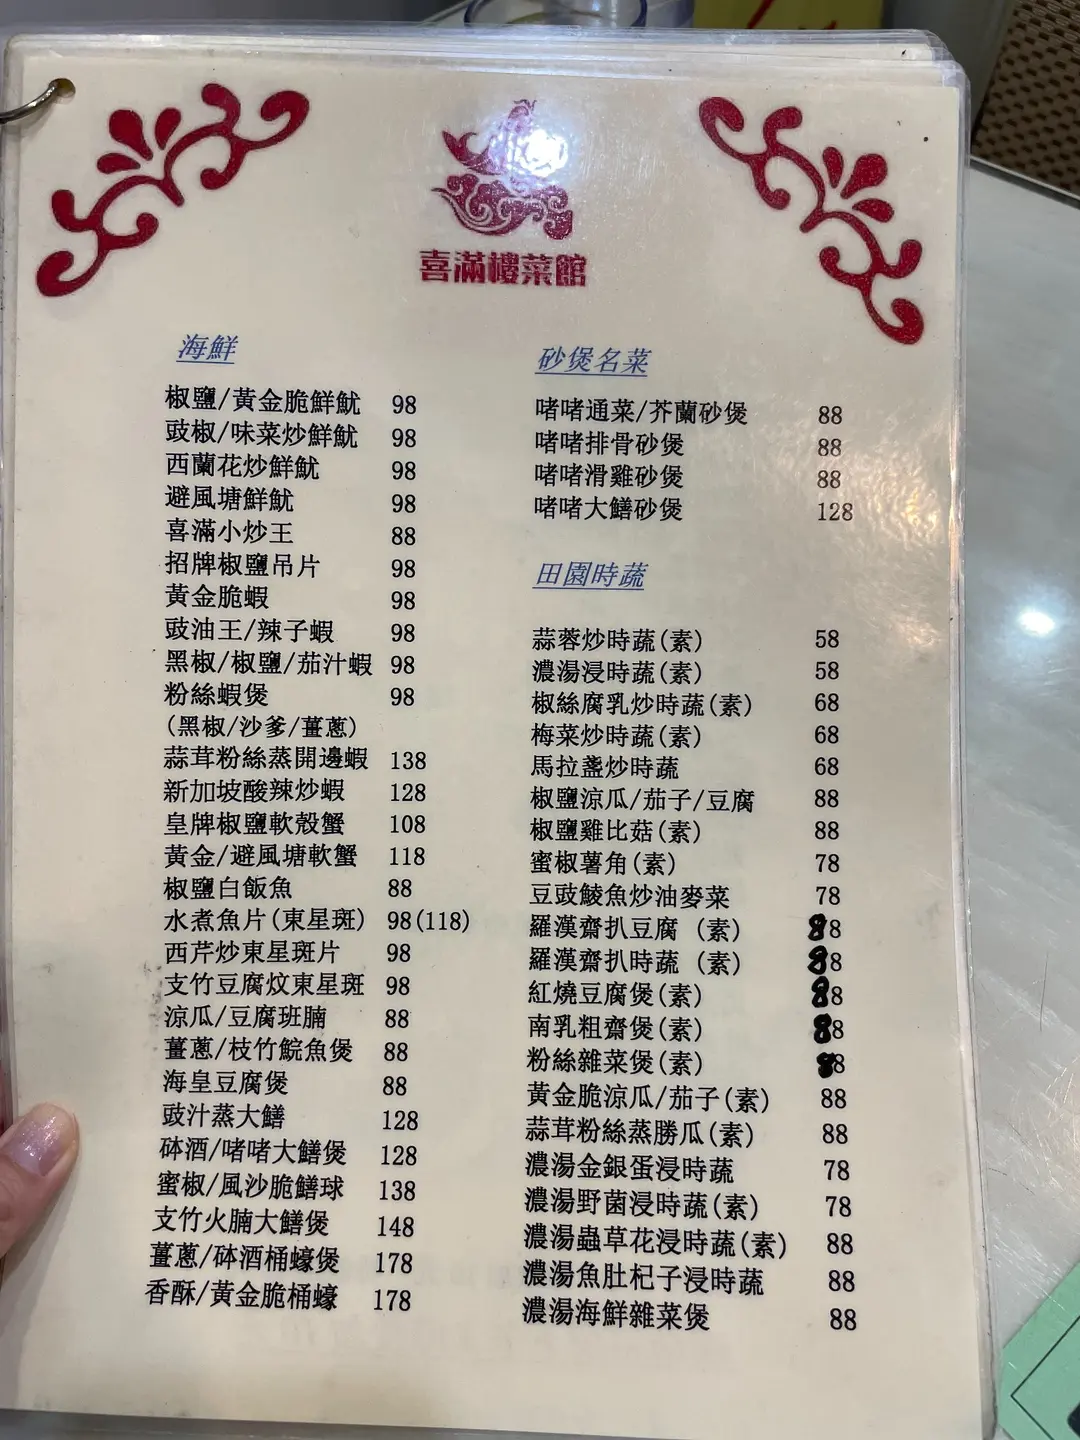 喜滿樓菜館
海鮮
椒鹽/黃金脆鮮魷 98
豉椒/味菜炒鮮魷 98
西蘭花炒鮮魷 98
避風塘鮮魷 98
喜滿小炒王 88
招牌椒鹽吊片 98
黃金脆蝦 98
豉油王/辣子蝦 98
黑椒/椒鹽/茄汁蝦 98
粉絲蝦煲 98
(黑椒/沙爹/薑蔥)
蒜茸粉絲蒸開邊蝦 138
新加坡酸辣炒蝦 128
皇牌椒鹽軟殼蟹 108
黃金/避風塘軟蟹 118
椒鹽白飯魚 88
水煮魚片(東星斑) 98(118)
西芹炒東星斑片 98
支竹豆腐炆東星斑 98
涼瓜/豆腐班腩 88
薑蔥/枝竹鯇魚煲 88
海皇豆腐煲 88
豉汁蒸大鱔 128
砵酒/啫啫大鱔煲 128
蜜椒/風沙脆鱔球 138
支竹火腩大鱔煲 148
薑蔥/砵酒桶蠔煲 178
香酥/黃金脆桶蠔 178
砂煲名菜
啫啫通菜/芥蘭砂煲 88
啫啫排骨砂煲 88
啫啫滑雞砂煲 88
啫啫大鱔砂煲 128
田園時蔬
蒜蓉炒時蔬(素) 58
濃湯浸時蔬(素) 58
椒絲腐乳炒時蔬(素) 68
梅菜炒時蔬(素) 68
馬拉盞炒時蔬 68
椒鹽涼瓜/茄子/豆腐 88
椒鹽雞比菇(素) 88
蜜椒薯角(素) 78
豆豉鯪魚炒油麥菜 78
羅漢齋扒豆腐 (素) 88
羅漢齋扒時蔬 (素) 88
紅燒豆腐煲(素) 88
南乳粗齋煲(素) 88
粉絲雜菜煲(素) 88
黃金脆涼瓜/茄子(素) 88
蒜茸粉絲蒸勝瓜(素) 88
濃湯金銀蛋浸時蔬 78
濃湯野菌浸時蔬(素) 78
濃湯蟲草花浸時蔬(素) 88
濃湯魚肚杞子浸時蔬 88
濃湯海鮮雜菜煲 88